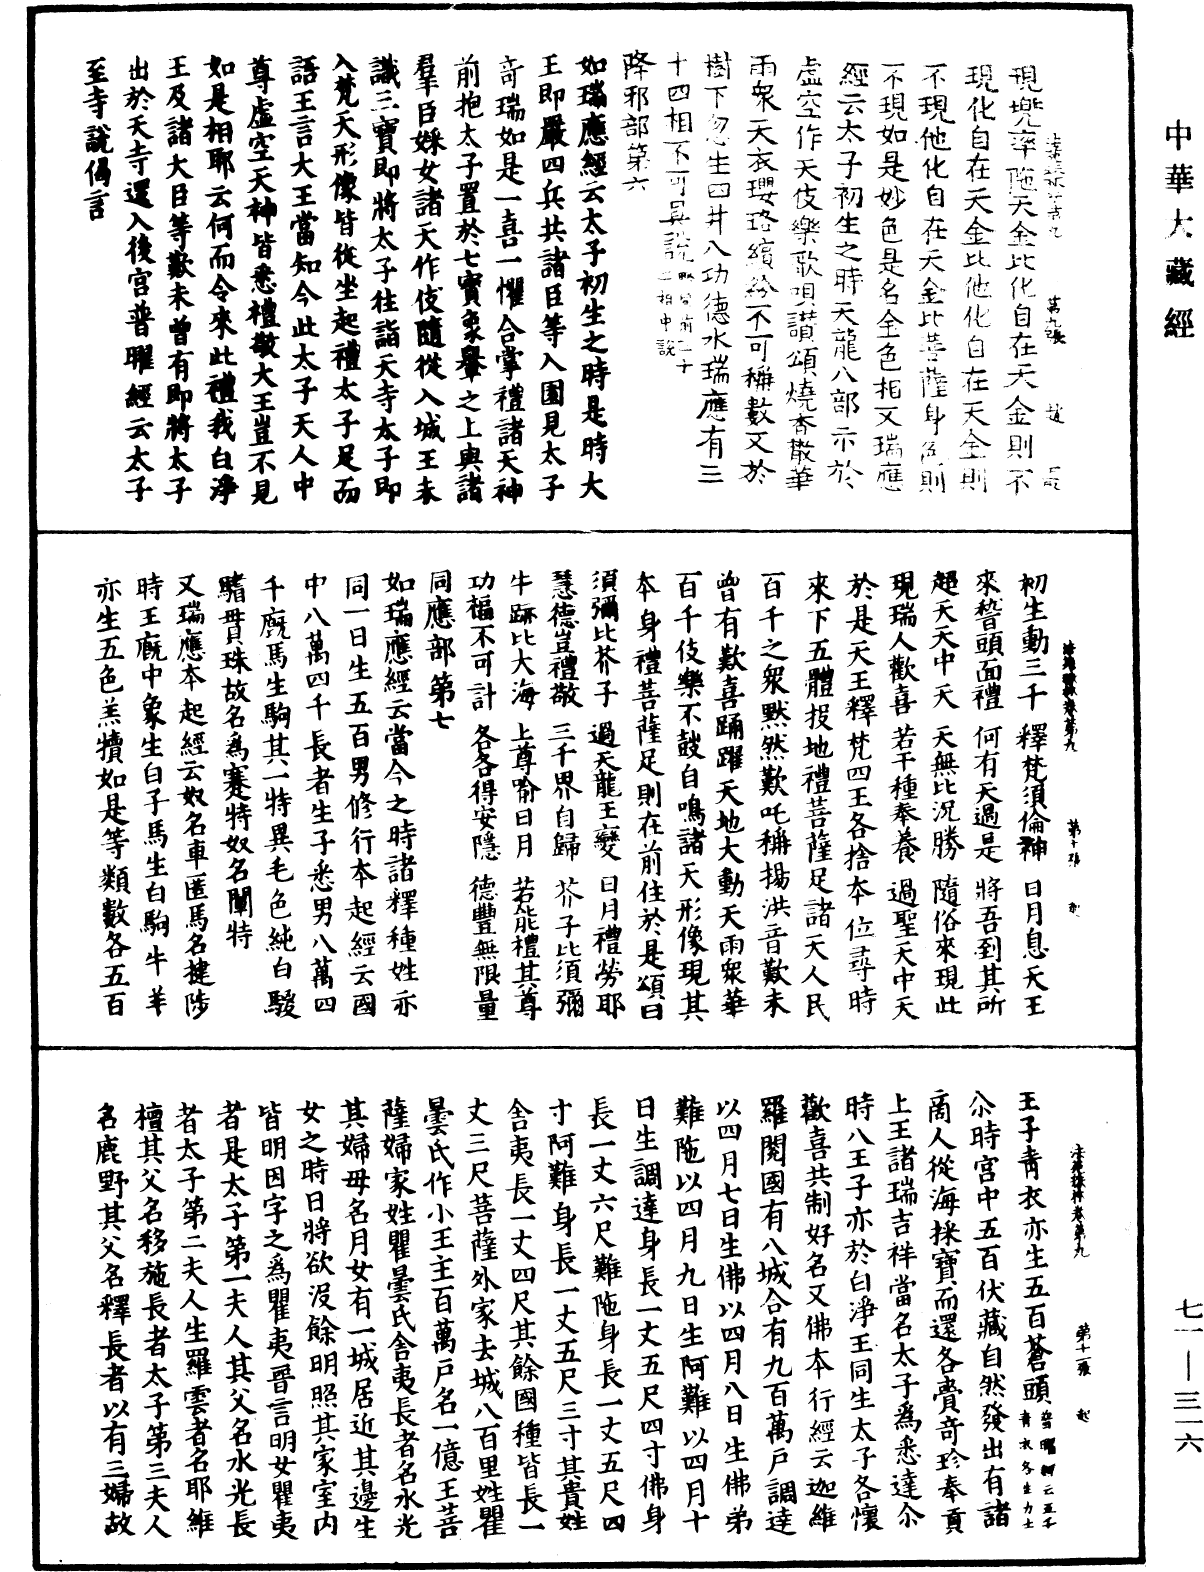 中華大藏經
現兜率陁天金比化自在天金則不
現化自在天金比他化自在天金則
不現他化自在天金比菩薩身色則
不現如是妙色是名金色相又瑞應
經云太子初生之時天龍八部亦於
虛空作天伎樂歌唄讃頌燒香散華
雨衆天衣瓔珞繽紛不可稱數又於
樹下忽生四井八功德水瑞應有三
十四相不可具說
降邪部第六
如瑞應經云太子初生之時是時大
王即嚴四兵共諸臣等入園見太子
奇瑞如是一喜一懼合掌禮諸天神
前抱太子置於七寶象轝之上與諸
羣臣婇女諸天作伎隨從入城王未
識三寶即將太子往詣天寺太子即
入梵天形像皆從坐起禮太子足而
語王言大王當知今此太子天人中
尊虛空天神皆悉禮敬大王豈不見
如是相耶云何而令來此禮我白淨
王及諸大臣等歎未曾有即將太子
出於天寺還入後宮普曜經云太子
至寺說偈言
法苑珠林卷第九 第十張
初生動三千 釋梵須倫神 日月息天王
來稽頭面禮 何有天過是 將吾到其所
超天天中天 天無比況勝 隨俗來現此
現瑞人歡喜 若干種奉養 過聖天中天
於是天王釋梵四王各捨本位尋時
來下五體投地禮菩薩足諸天人民
百千之衆默然歎吒稱揚洪音歎未
曾有歡喜踊躍天地大動天雨衆華
百千伎樂不鼓自鳴諸天形像現其
本身禮菩薩足則在前住於是頌曰
須彌比芥子 過天龍王變 日月禮勞耶
慧德豈禮敬 三千界自歸 芥子比須彌
牛跡比大海 上尊喻日月 若能禮其尊
功福不可計 各各得安隱 德豐無限量
同應部第七
如瑞應經云當今之時諸釋種姓亦
同一日生五百男修行本起經云國
中八萬四千長者生子悉男八萬四
千廐馬生駒其一特異毛色純白騣
𩮻貫珠故名爲騫特奴名闡特
又瑞應本起經云奴名車匿馬名揵陟
時王廐中象生白子馬生白駒牛羊
亦生五色羔犢如是等類數各五百
法苑珠林卷第九 第十一張
王子青衣亦生五百蒼頭 普曜經云五千青衣各生力士
尒時宮中五百伏藏自然發出有諸
商人從海採寶而還各賷奇珍奉貢
上王諸瑞吉祥當名太子爲悉達尒
時八王子亦於白淨王同生太子各懷
歡喜共制好名又佛本行經云迦維
羅閱國有八城合有九百萬戶調達
以四月七日生佛以四月八日生佛弟
難陁以四月九日生阿難以四月十
日生調達身長一丈五尺四寸佛身
長一丈六尺難陁身長一丈五尺四
寸阿難身長一丈五尺三寸其貴姓
舍夷長一丈四尺其餘國種皆長一
丈三尺菩薩外家去城八百里姓瞿
曇氏作小王主百萬戶名一億王菩
薩婦家姓瞿曇氏舍夷長者名水光
其婦母名月女有一城居近其邊生
女之時日將欲沒餘明照其家室內
皆明因字之爲瞿夷晉言明女瞿夷
者是太子第一夫人其父名水光長
者太子第二夫人生羅雲者名耶維
檀其父名移施長者太子第三夫人
名鹿野其父名釋長者以有三婦故
七一—三一六